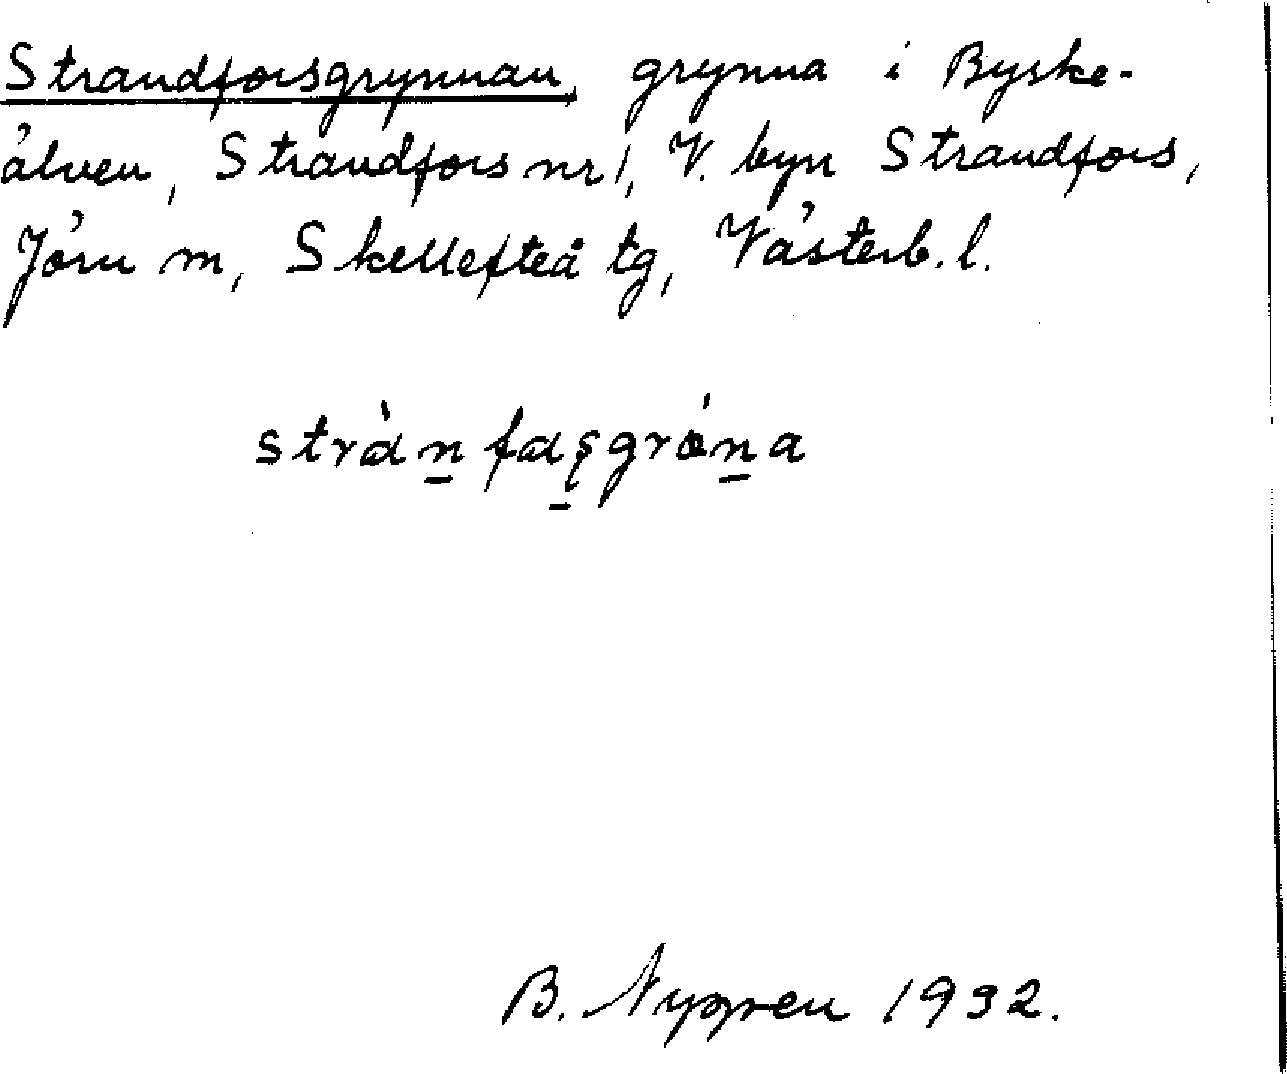 Strandforsgrynnan, grynna i Byske-
älven, Strandfors nr 1, V. byn Strandfors,
Jörn sn, Skellefteå tg, Västerb. l.
stràn̲fas̲gró̵n̲a
B. Nygren 1932.